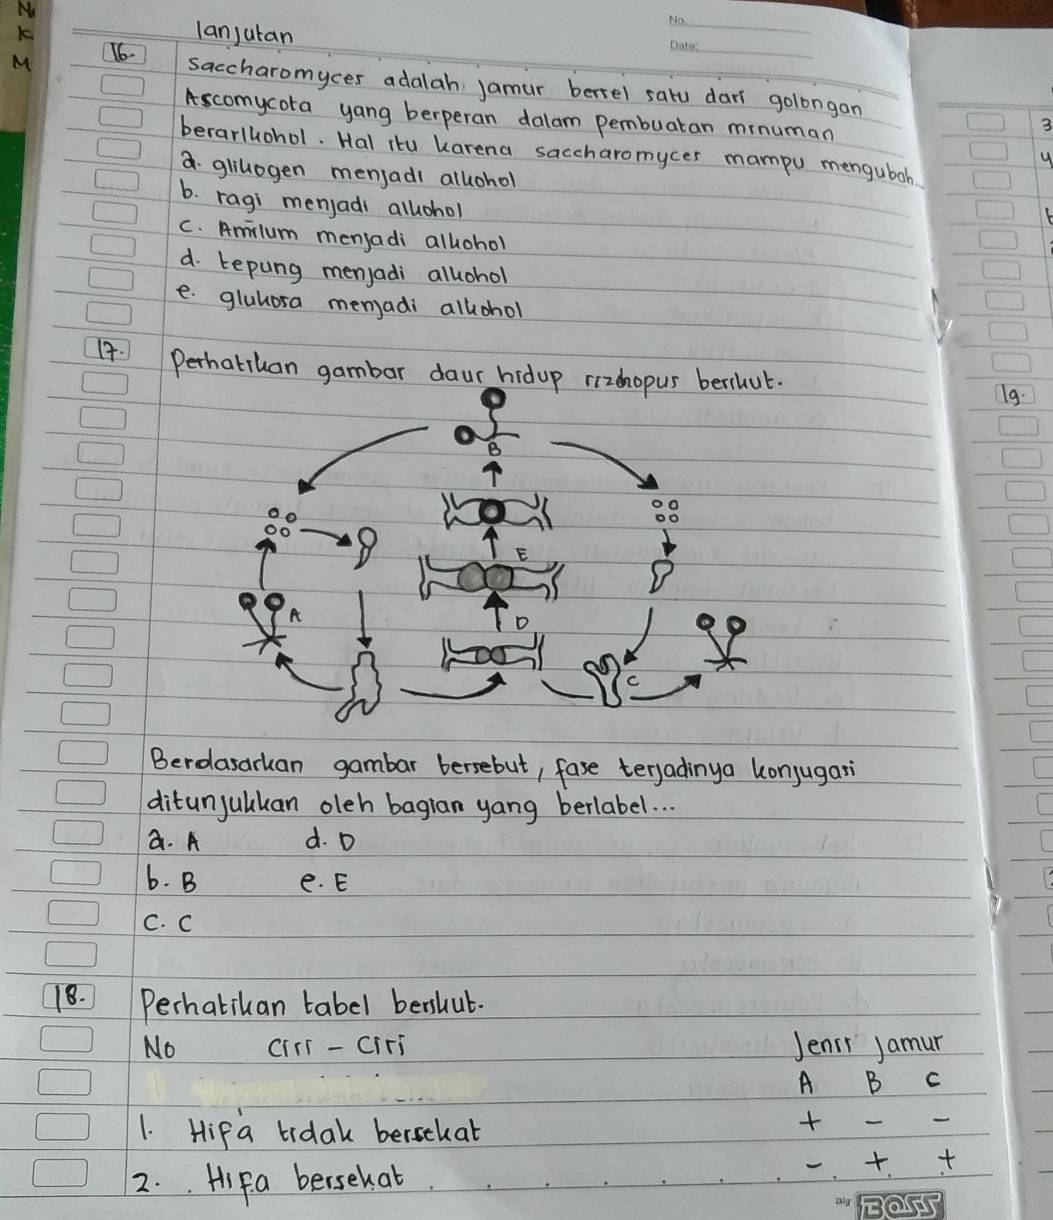 No
K
M
lanjutan
No.
Date:
16. Saccharomyces adalah jamur bersel satu dari golongan
Ascomycota yang berperan dalam pembuatan minuman
berarlkohol. Hal itu karena saccharomyces mampu mengubah..
a. glikogen menjadi alkohol
b. ragi menjadi alkohol
c. Amilum menjadi alkohol
d. tepung menjadi alkohol
e. glukosa menjadi alkohol
17. Perhatikan gambar daur hidup rizhopus berikut.
B
E
A
D
C
Berdasarkan gambar bersebut, fase terjadinya konjugasi
ditunjukkan oleh bagian yang berlabel...
a. A d. D
b. B e. E
c. C
18. Perhatikan tabel berikut.
No Ciri - Ciri Jenis jamur
A B C
1. Hifa tidak bersekat + - -
2. Hifa bersekat - + +
Big BOSS
3
4
19.